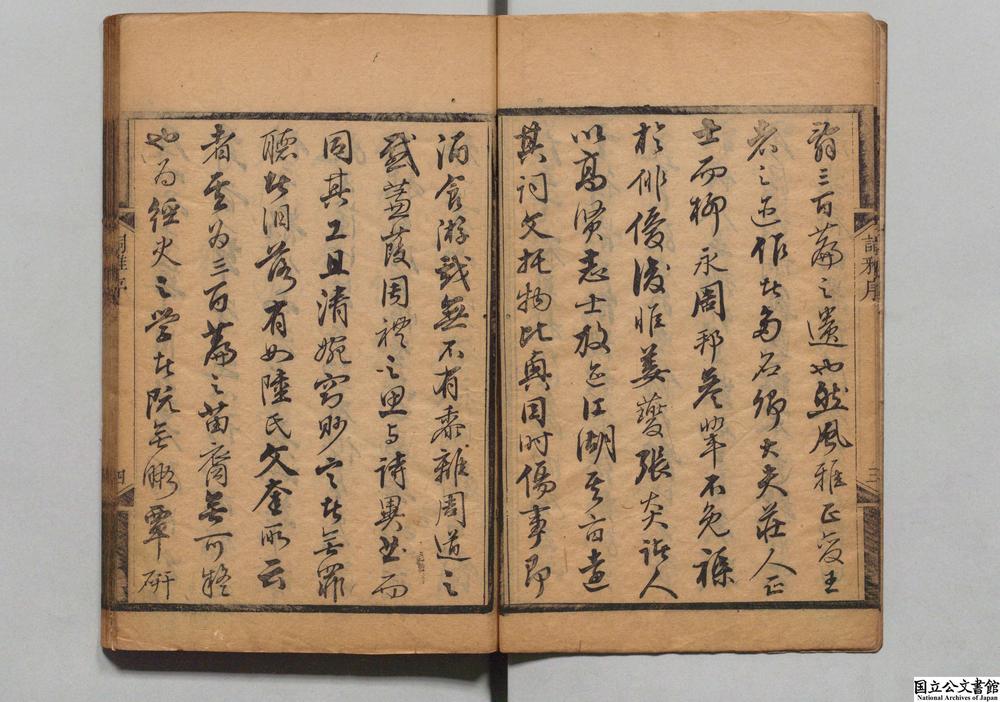 三百篇之遺也然風雅正變王
者之迹作者多名卿大夫莊人正
士而柳永周邦彥輩不免雜
於俳優後惟姜夔張炎諸人
以高賢志士放迹江湖其旨遠
其詞文托物比興因時傷事即
酒食游戲無不有黍離周道之
感蓋葭周禮之思与詩異曲而
同其工且清婉窈眇言者無罪
聽者泪落有如陸氏文奎所云
者其為三百篇之苗裔無可疑
也為經史之学者既無暇覃研
詞雅序
三
詞雅序
四
国立公文書館
National Archives of Japan